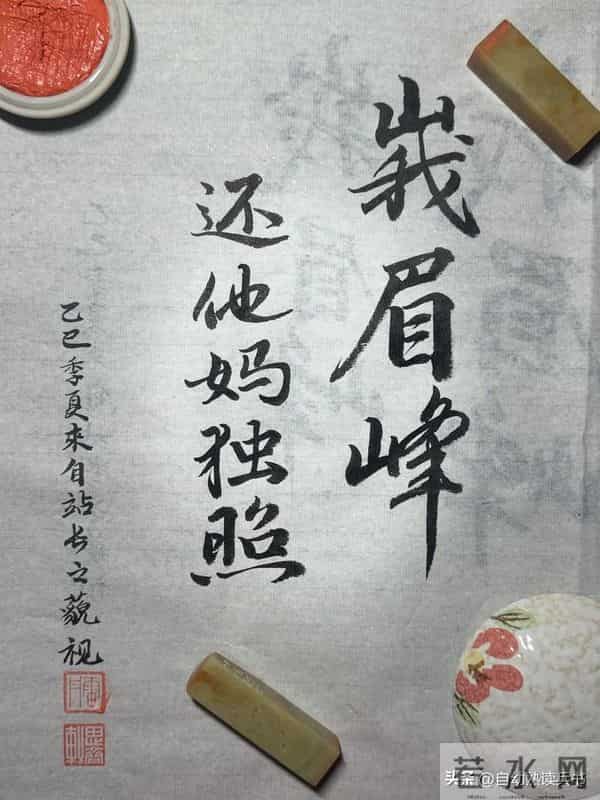 峩眉峰
还他妈独照
乙巳季夏來自站长之藐视
若水网
头条 @自动熟读兵书